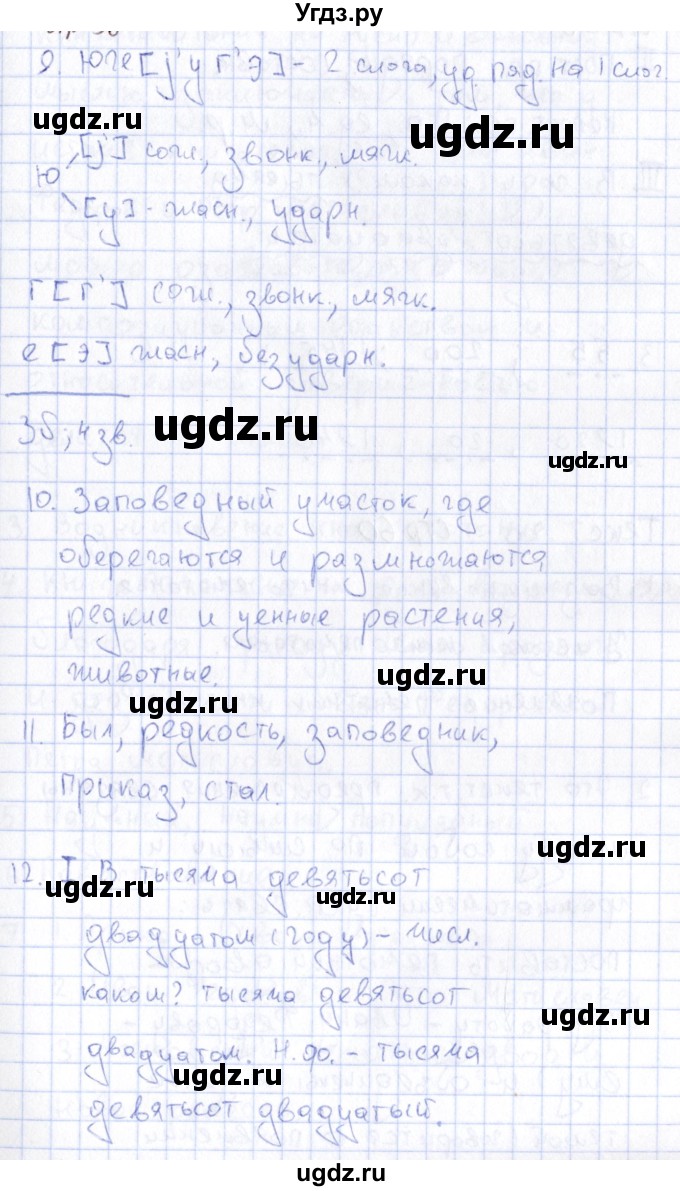 Угдз.ру
9. Юге [j'у г'э] - 2 слога, уд. пад. на 1 слог.
ugdz.ru ugdz.ru
Ю [j'] согл., звонк., мягк.
[у] - гласн., ударн.
ugdz.ru ugdz.ru
г [г'] согл., звонк., мягк.
е [э] гласн, безударн.
3б; 4 зв.
ugdz.ru ugdz.ru
10. Заповедный участок, где
оберегаются и размножаются
редкие и ценные растения,
животные.
ugdz.ru ugdz.ru
11. Был, редкость, заповедник,
приказ, стал.
ugdz.ru
12. I В тысяча девятьсот
ugdz.ru ugdz.ru
двадцатом (году) - числ.
каком? тысяча девятьсот
ugdz.ru
двадцатом. Н.ф. - тысяча
ugdz.ru
девятьсот двадцатый.
ugdz.ru